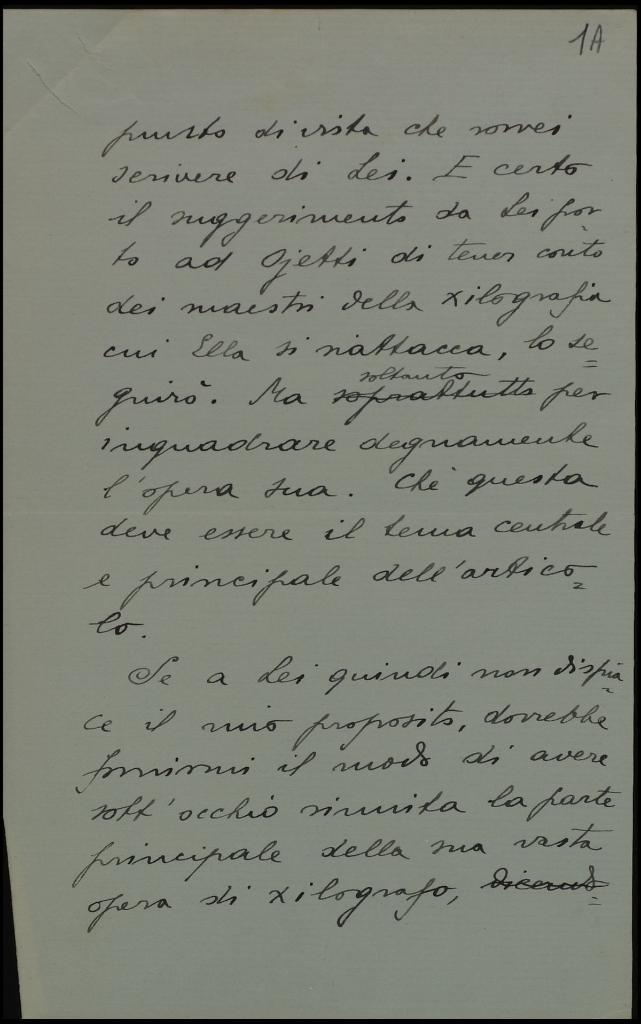 1A
punto di vista che vorrei
scrivere di Lei. E certo
il suggerimento da Lei por
to ad Ojetti di tener conto
dei maestri della xilografia
cui Ella si riattacca, lo se=
guirò. Ma soprattutto soltanto per
inquadrare degnamente
l'opera sua. Chè questa
deve essere il tema centrale
e principale dell'artico=
lo.
Se a Lei quindi non dispia=
ce il mio proposito, dovrebbe
fornirmi il modo di avere
sott'occhio riunita la parte
principale della sua vasta
opera di xilografo, dicendo=